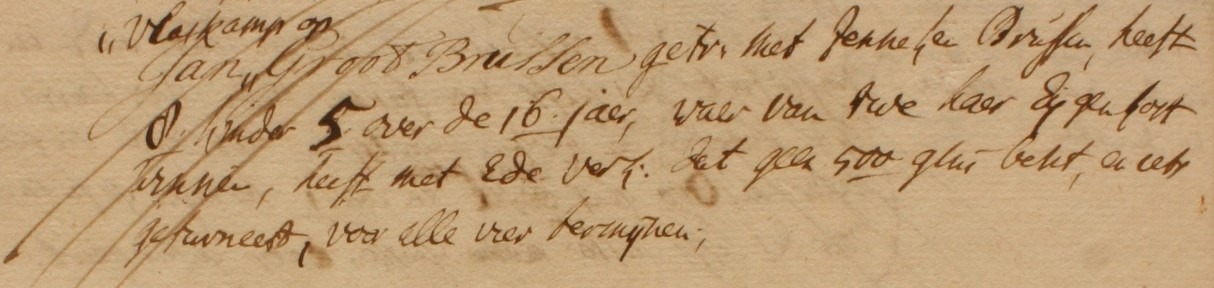 „Vlaskamp op
Jan „Groot Brussen getr. met Jenneken Brussen, heeft
8. kinder 5 over de 16. jaer, waer van twe haer Eygen kost
winnen, heeft met Ede verk. dat geen 500 gl. besit, en iets
gefurneert, voor alle vier termynen,